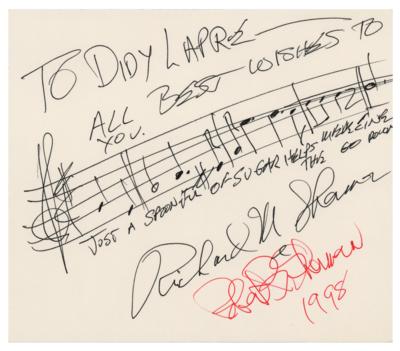 TO DIDY LAPRE
ALL BEST WISHES TO
YOU.
JUST A SPOONFUL OF SUGAR HELPS THE MEDICINE
GO DOWN
Richard M Sherman
&
Robt B. Sherman
1998